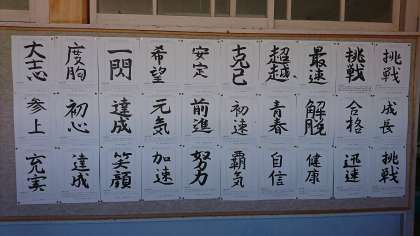 大志 度胸 一閃 希望 安定 克己 超越 最速 挑戦 挑戦
参上 初心 達成 元気 前進 初速 青春 解脱 合格 成長
充実 達成 笑顔 加速 努力 覇気 自信 健康 迅速 挑戦